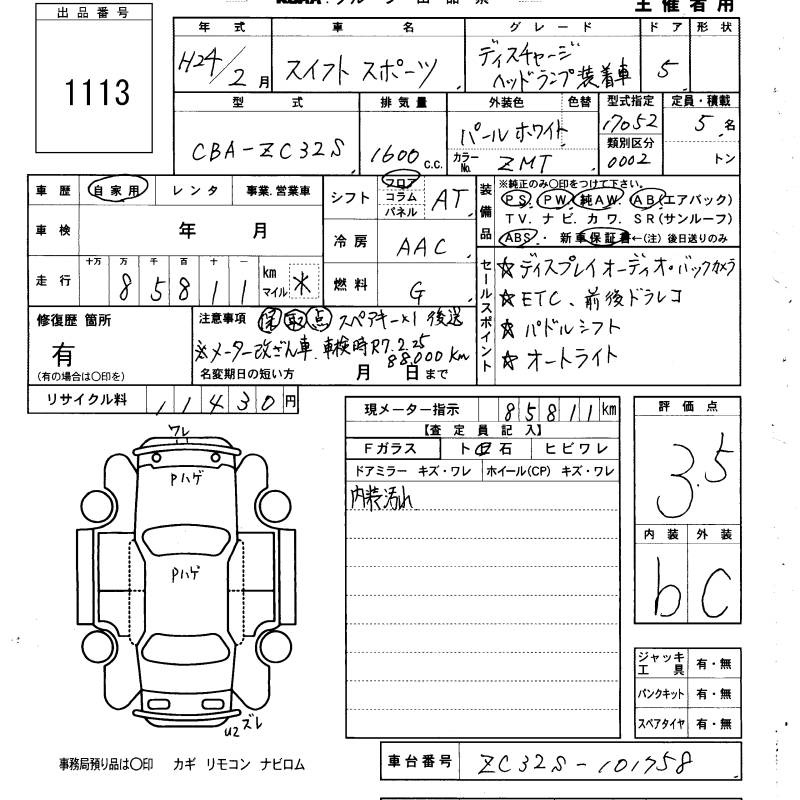 主催者用
出品番号
1113
年式 車名 グレード ドア 形状
H24/2月 スイフト スポーツ ディスチャージ ヘッドランプ装着車 5
型式 排気量 外装色 色替 型式指定 定員・積載
CBA-ZC32S 1600c.c. パールホワイト 17052 5名
カラーNo. ZMT 類別区分 0002 トン
車歴 自家用 レンタ 事業.営業車
車検 年 月
走行 十万 万 千 百 十 一 km マイル
8 5 8 1 1 *
シフト フロア コラム パネル AT
冷房 AAC
燃料 G
装備品
※純正のみ〇印をつけて下さい。
PS. PW. 純AW. AB(エアバック)
TV. ナビ. カワ. SR(サンルーフ)
ABS・ 新車保証書←(注) 後日送りのみ
セールスポイント
☆ディスプレイオーディオ・バックカメラ
☆ETC、前後ドラレコ
☆パドルシフト
☆オートライト
修復歴 箇所
有
(有の場合は〇印を)
注意事項 保 取 点 スペアキー×1 後送
※メーター改ざん車.車検時R7.2.25
88,000Km
名変期日の短い方 月 日まで
リサイクル料 11430円
現メーター指示 85811km
【査定員記入】
Fガラス ト石 ヒビワレ
ドアミラー キズ・ワレ ホイール(CP) キズ・ワレ
内装汚れ
評価点
3.5
内装 外装
b C
ワレ
Pハゲ
Pハゲ
U2ズレ
ジャッキ 工具 有・無
パンクキット 有・無
スペアタイヤ 有・無
事務局預り品は〇印 カギ リモコン ナビロム
車台番号 ZC32S-101758